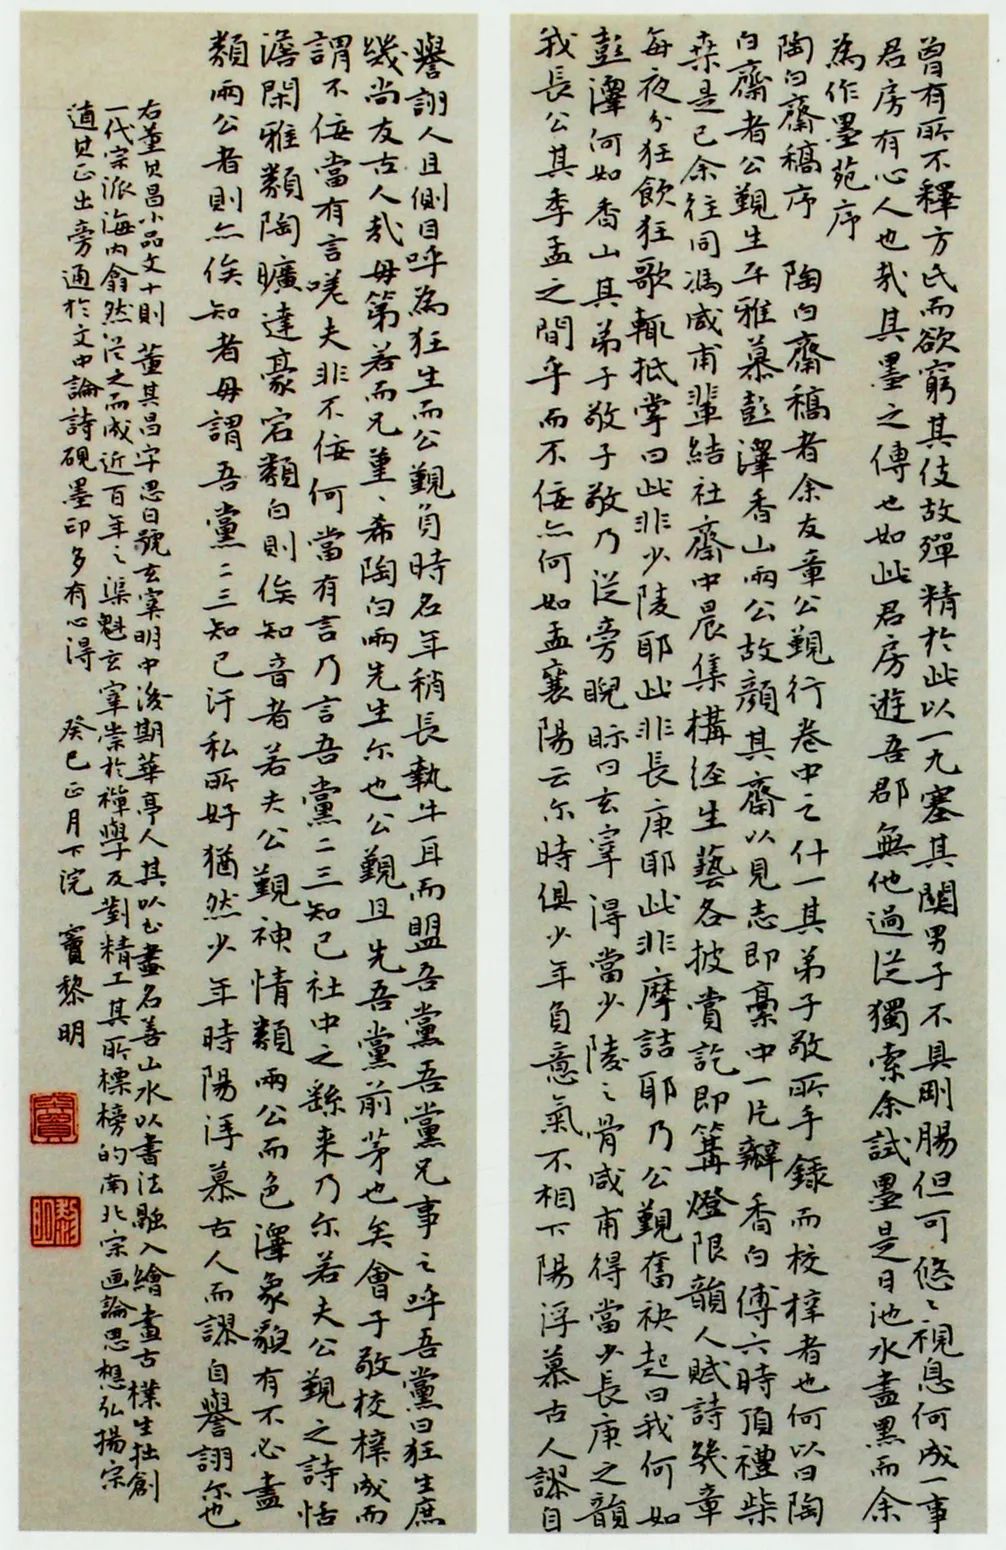 曾有所不釋方氏而欲窮其伎故殫精於此以一丸塞其關男子不具剛腸但可悠〻視息何成一事
君房有心人也哉其墨之傳也如此君房遊吾郡無他過從獨索余試墨是日池水盡黑而余
為作墨苑序
陶白齋稿序　陶白齋稿者余友章公覲行卷中之什一其弟子敬所手錄而校梓者也何以曰陶
白齋者公覲生平雅慕彭澤香山兩公故顏其齋以見志即稾中一片瓣香白傅六時頂禮柴
桒是已余往同馮咸甫輩結社齋中晨集構經生藝各披賞訖即篝燈限韻人賦詩幾章
每夜分狂飲狂歌輒抵掌曰此非少陵耶此非長庚耶此非摩詰耶乃公覲奮袂起曰我何如
彭澤何如香山其弟子敬子敬乃從旁睨眎曰玄宰得當少陵之骨咸甫得當少長庚之韻
我長公其季孟之間乎而不佞亦何如孟襄陽云尔時俱少年負意氣不相下陽浮慕古人謬自
譽詡人且側目呼為狂生而公覲負時名年稍長執牛耳而盟吾黨吾黨兄事之呼吾黨曰狂生庶
幾尚友古人哉毋第若而兄堇〻希陶白兩先生尔也公覲且先吾黨前茅也矣會子敬校梓成而
謂不佞當有言嗟夫非不佞何當有言乃言吾黨二三知己社中之繇来乃尔若夫公覲之詩恬
澹閑雅類陶曠達豪宕類白則俟知音者若夫公覲神情類兩公而色澤象貌有不必盡
類兩公者則亦俟知者毋謂吾黨二三知己汙私所好猶然少年時陽浮慕古人而謬自譽詡尔也
右董其昌小品文十則　董其昌字思白號玄宰明中後期華亭人其以書畫名善山水以書法融入繪畫古樸生拙創
一代宗派海内翕然從之而成近百年之渠魁玄宰崇於禪學及對精工其所標榜的南北宗画論思想弘揚宗
適其正出旁通於文中論詩硯墨印多有心得　癸巳正月下浣　竇黎明
竇
黎明